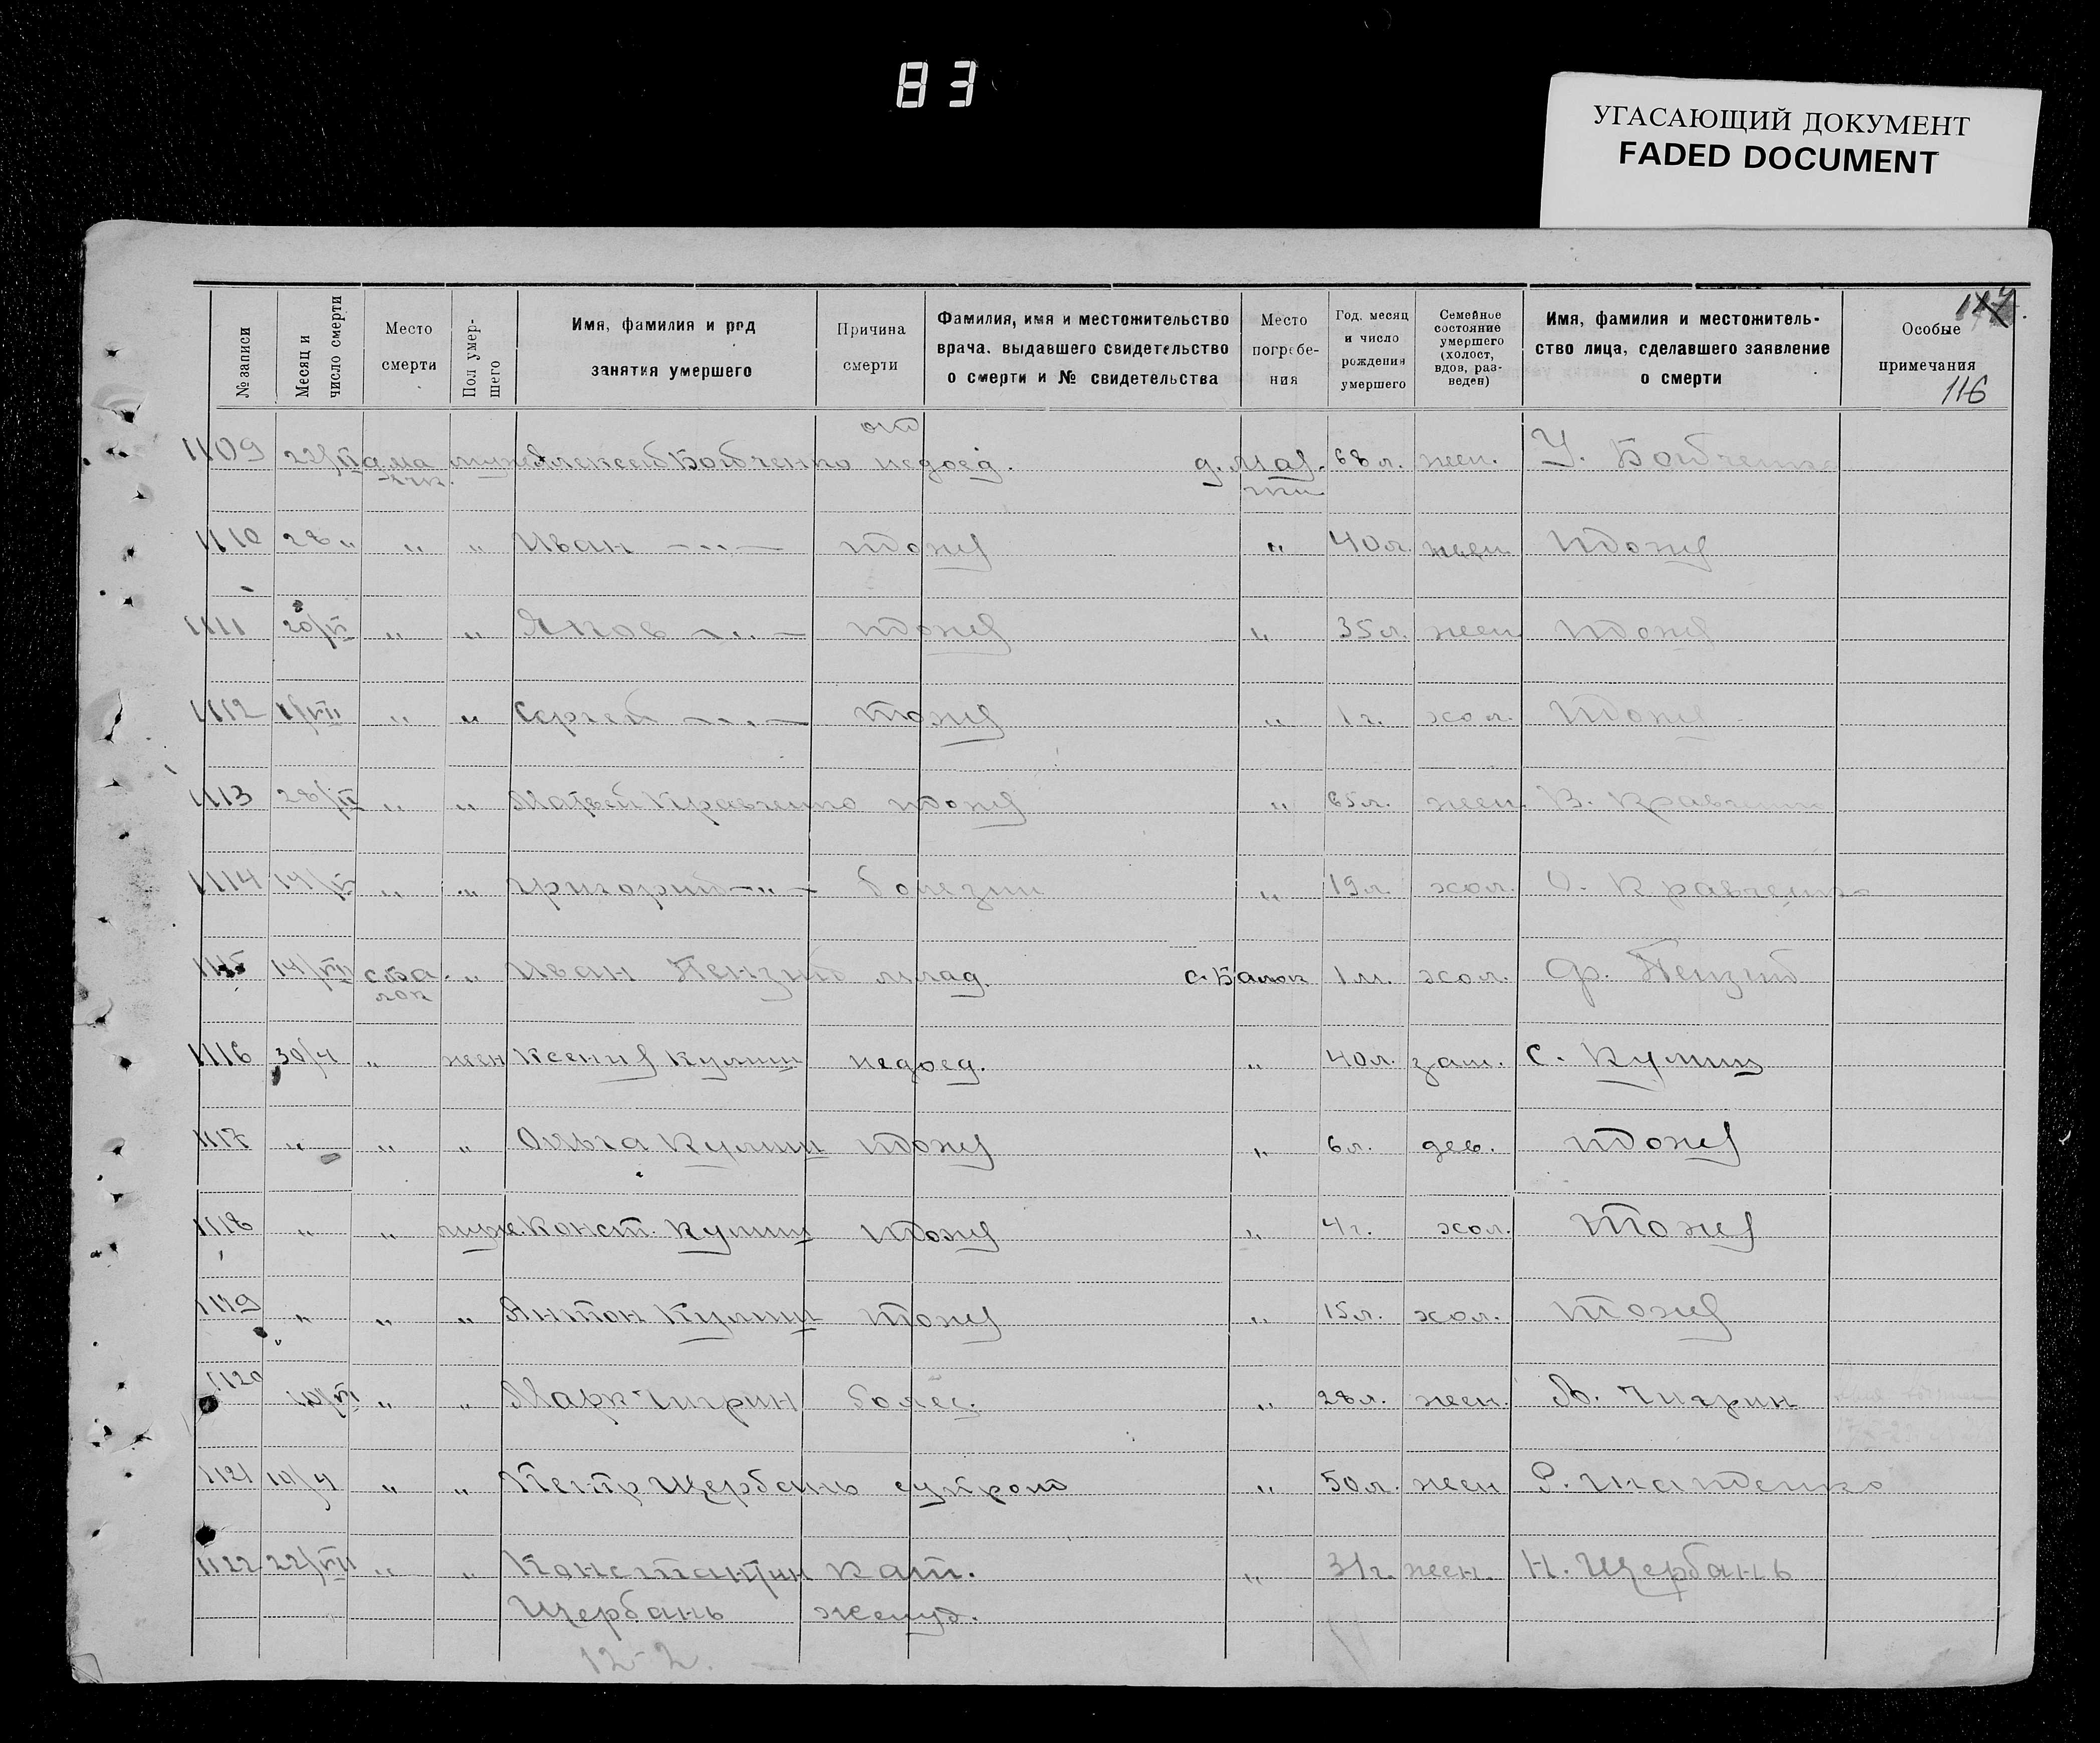 83
УГАСАЮЩИЙ ДОКУМЕНТ
FADED DOCUMENT
117.
116
№ записи
Месяц и число смерти
Место смерти
Пол умершего
Имя, фамилия и род занятия умершего
Причина смерти
Фамилия, имя и местожительство врача, выдавшего свидетельство о смерти и № свидетельства
Место погребения
Год, месяц и число рождения умершего
Семейное состояние умершего (холост, вдов, разведен)
Имя, фамилия и местожительство лица, сделавшего заявление о смерти
Особые примечания
1109 муж Алексей Бойченко от недоед. 68 л. жен. У. Бойченко
1110 28 " " " Иван —"— тоже " 40 л. жен тоже
1111 20/VI " " Яков —"— тоже " 35 л. жен тоже
1112 1/VII " " Сергей —"— тоже " 1 г. хол. тоже
1113 28/ " " Матвей Кравченко тоже " 65 л. жен. В. Кравченко
1114 14/VI " " Григорий —"— болезни " 19 л. хол. О. Кравченко
1115 14/VII с. Балок " Иван млад. с. Балок 1 м. хол. Ф.
1116 30/4 " жен Ксения Кулиш недоед. " 40 л. зам. С. Кулиш
1117 " " " Ольга Кулиш тоже " 6 л. дев. тоже
1118 " " муж. Конст. Кулиш тоже " 4 г. хол. тоже
1119 " " " Антон Кулиш тоже " 15 л. хол. тоже
1120 10/VI " " Марк Чигрин болес. " 28 л. жен. Чигрин
1121 10/4 " " Петр Щербань " 50 л. жен Р.
1122 22/VII " " Константин Щербань кат. желуд. " 31 г. жен. Н. Щербань
12-2.